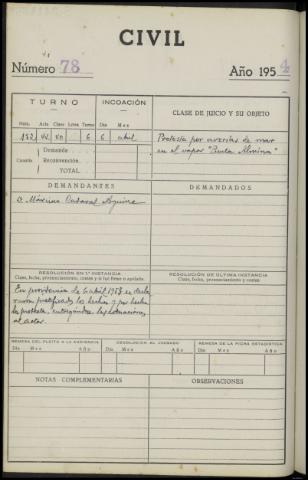 CIVIL
Número 78
Año 1954
TURNO
INCOACIÓN
CLASE DE JUICIO Y SU OBJETO
Núm. Acta Clase Letra Turno Día Mes
6 6 abril
Protesta por averías de mar
en el vapor "Punta Almina"
Cuantía
Demanda
Reconvención
TOTAL
DEMANDANTES
DEMANDADOS
D. Máximo Aguirre
RESOLUCIÓN EN 1.ª INSTANCIA
Clase, fecha, pronunciamiento, costas y si fué firme o apelada.
RESOLUCIÓN DE ÚLTIMA INSTANCIA
Clase, fecha, pronunciamiento y costas
En providencia de 6 abril 1954 se decla
raron justificados los hechos y por hecha
la protesta, entregándose las actuaciones
al actor.
REMESA DEL PLEITO A LA AUDIENCIA
DEVOLUCIÓN AL JUZGADO
REMESA DE LA FICHA ESTADÍSTICA
Día Mes Año
Día Mes Año
Día Mes Año
NOTAS COMPLEMENTARIAS
OBSERVACIONES